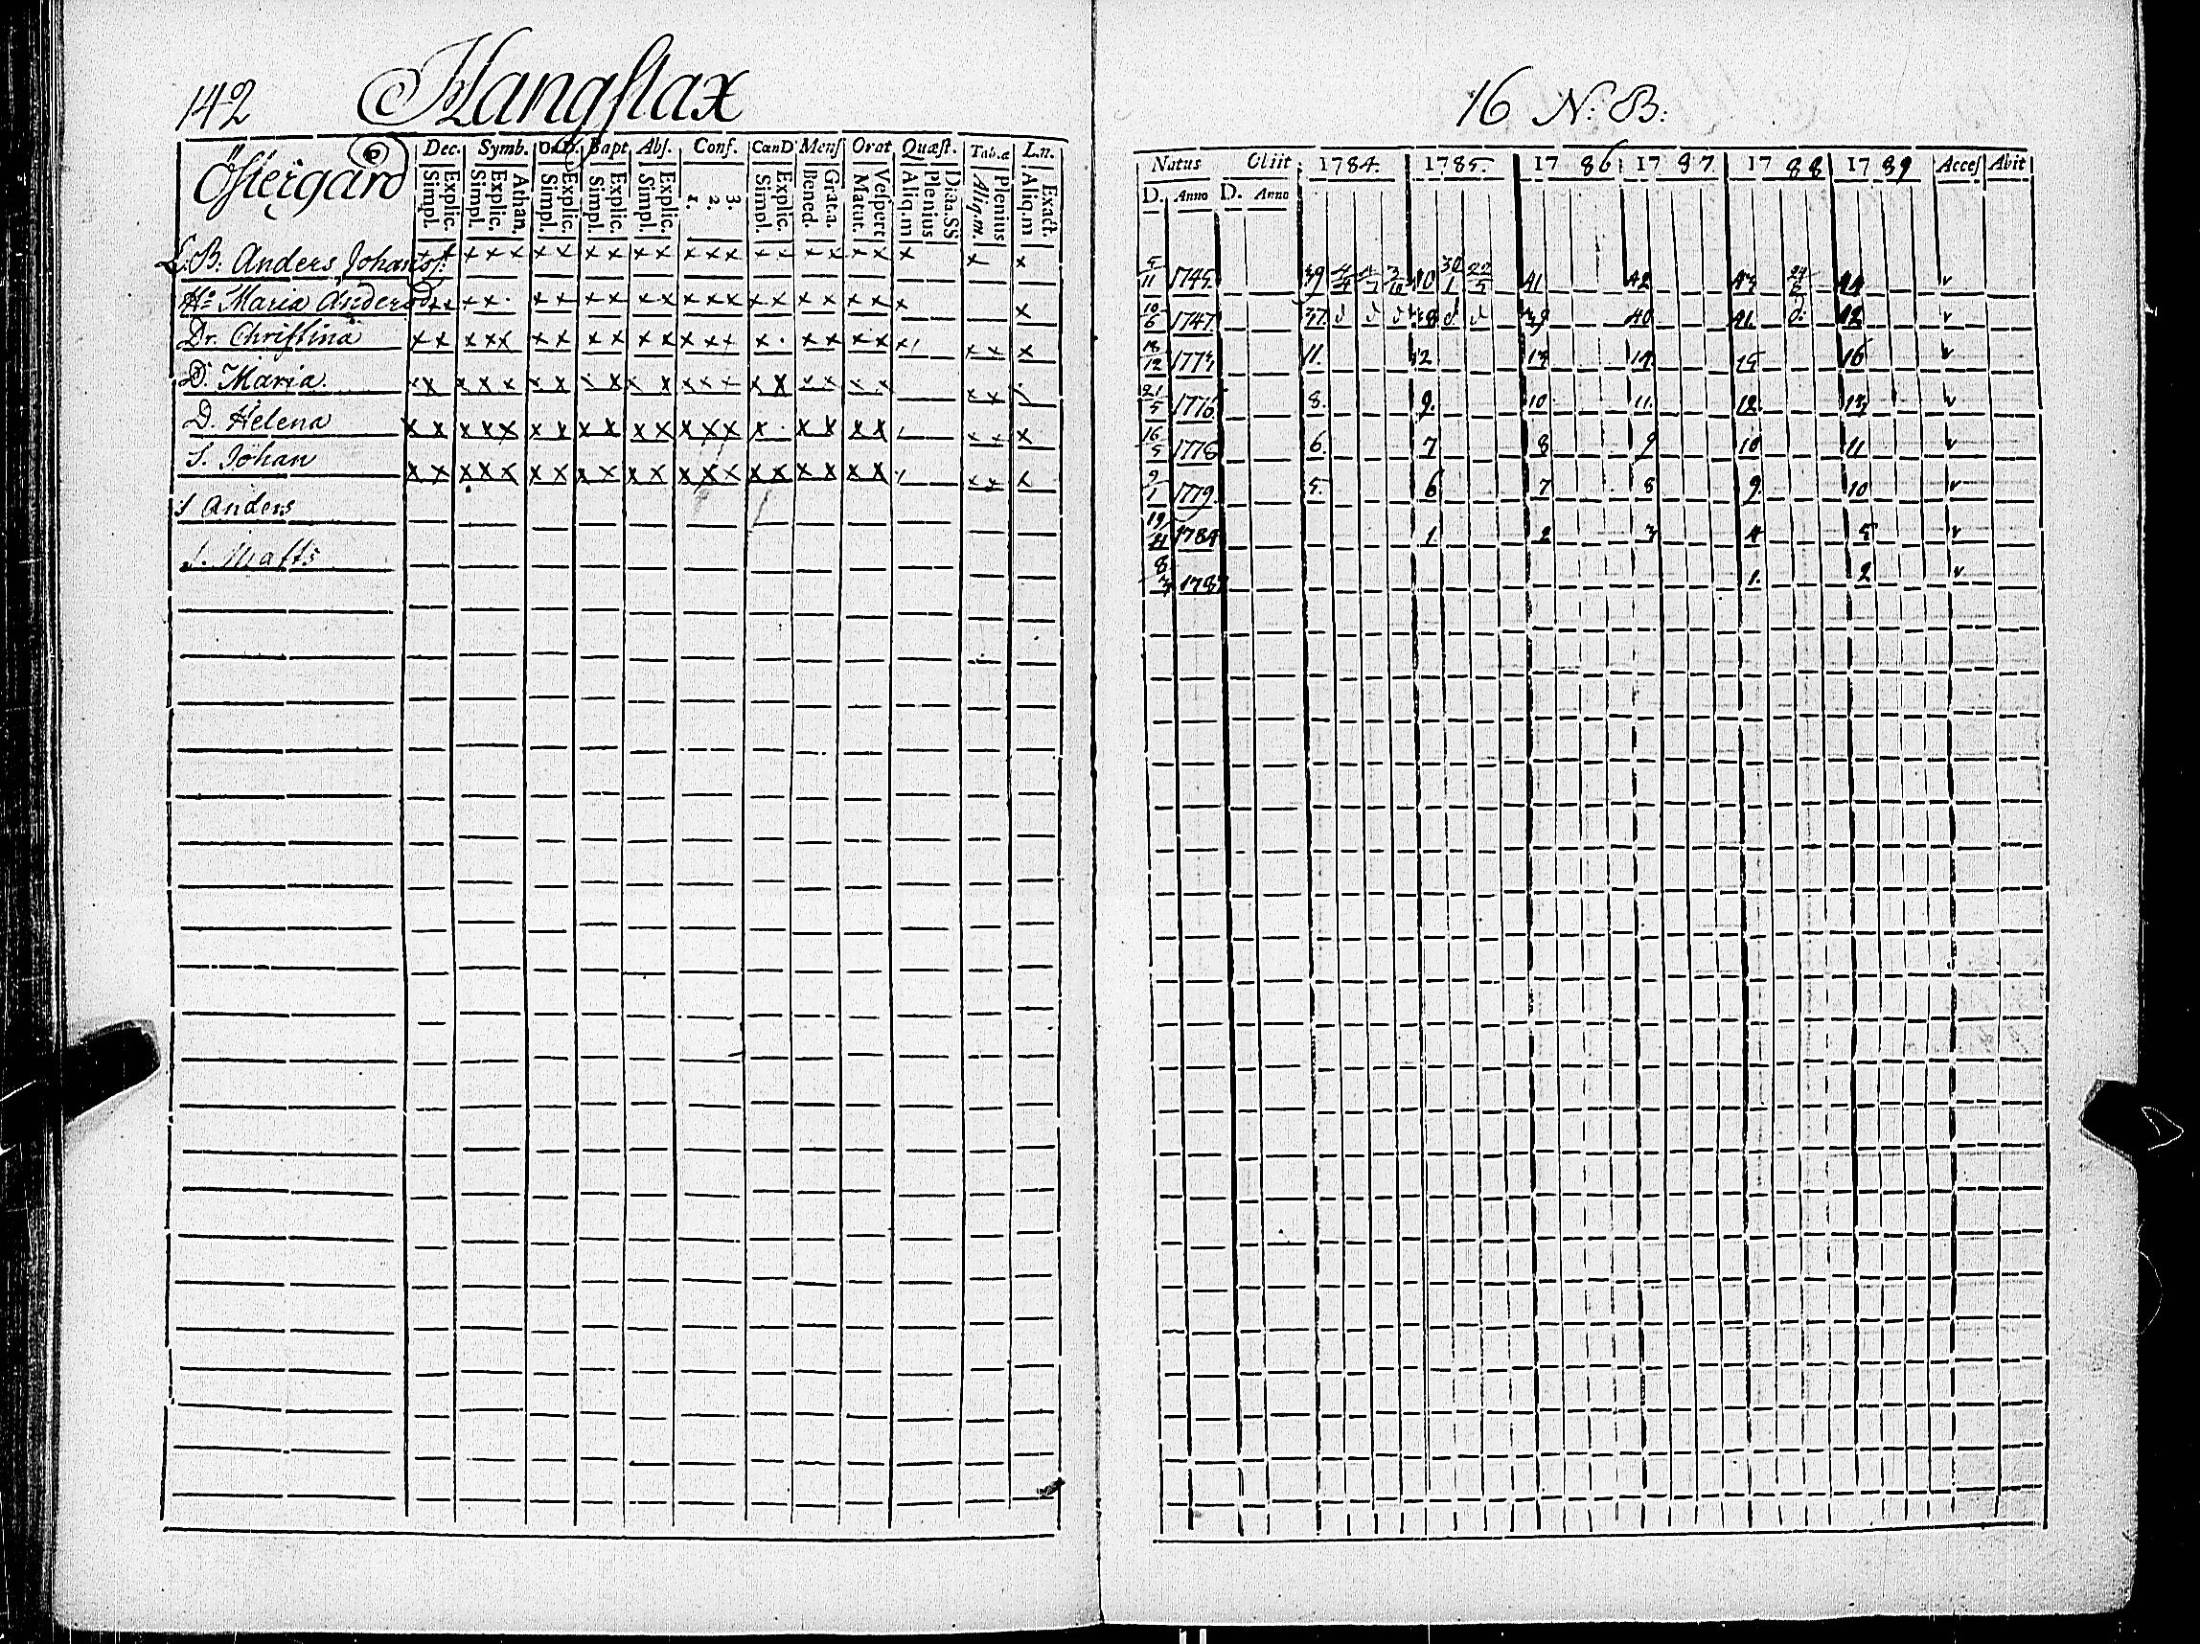 142 Hangstax
16 N: B:
Östergård
Dec. Symb. Or.D. Bapt Abs. Conf. CanD Mens Orat Quæst. Tab.æ L.n.
Simpl. Explic. Simpl. Explic. Athan. Simpl. Explic. Simpl. Explic. Simpl. Explic. 1. 2. 3. Simpl. Explic. Bened. Grat.a. Matut. Vespert Aliq.m Plenius Dicta.SS Aliq.m. Plenius Aliq.m Exact.
Natus Obiit 1784. 1785. 1786 1787 1788 1789 Acces Abit
D. Anno D. Anno
L.B: Anders Johans: x x x x x x x x x x x x x x x x x x x x x
5/11 1745. 39 40 30/1 22/5 41 42 43 44 v
H: Maria Andersd: x x x x x x x x x x x x x x x x x x x
10/6 1747. 37. d d d 38 d d 39 40 41. d. 42 v
Dr. Christina x x x x x x x x x x x x x x x x x x x x x x
18/12 1773 11. 12 13 14. 15 16 v
D. Maria. x x x x x x x x x x x x x x x x x x
21/5 1776 8. 9. 10 11. 12. 13 v
D. Helena x x x x x x x x x x x x x x x x x x x x x
16/5 1778 6. 7 8 9 10 11 v
S. Johan x x x x x x x x x x x x x x x x x x x x x x
9/1 1779. 5. 6 7 8 9. 10 v
S Anders
19/11 1784 1 2 3 4 5 v
S. Matts
8/3 1787 1. 2 v